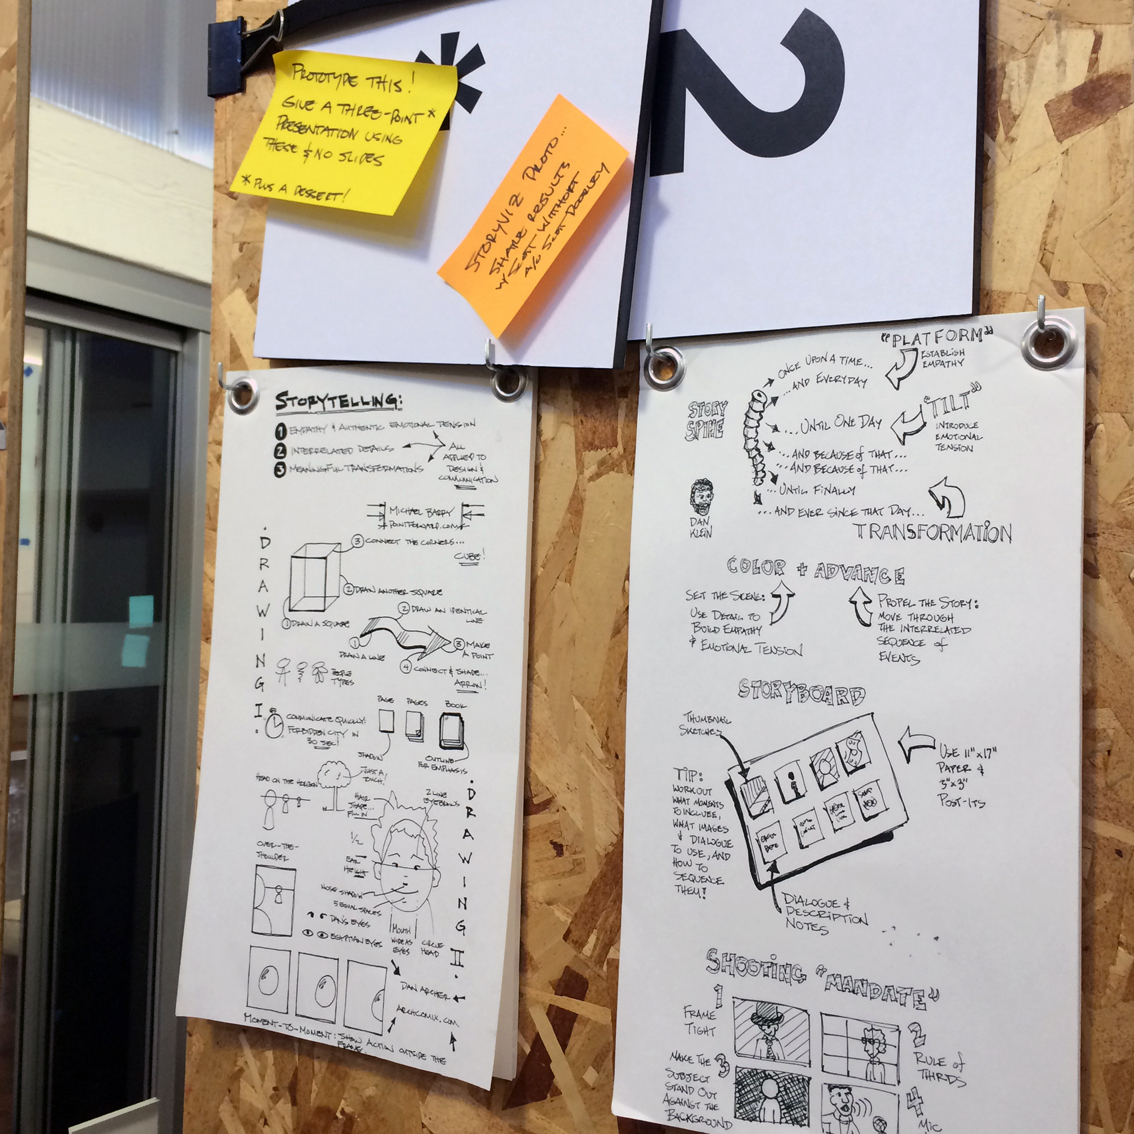 PROTOTYPE THIS!
GIVE A THREE-POINT*
PRESENTATION USING
THESE & NO SLIDES
*PLUS A DESSERT!
*
2
STORYVIZ PROTO...
SHARE RESULTS
W/ SCOTT WITTHOFT
A/O SCOTT DOORLEY
STORYTELLING:
1 EMPATHY & AUTHENTIC EMOTIONAL TENSION
2 INTERRELATED DETAILS
3 MEANINGFUL TRANSFORMATIONS
ALL
APPLIED TO
DESIGN &
COMMUNICATION
MICHAEL BARRY
POINTFORWARD.COM
DRAWING I.
3 CONNECT THE CORNERS...
CUBE!
2 DRAW ANOTHER SQUARE
1 DRAW A SQUARE
2 DRAW AN IDENTICAL
LINE
1
DRAW A LINE
3 MAKE
A POINT
4 CONNECT & SHADE...
ARROW!
PEOPLE
TYPES
COMMUNICATE QUICKLY!
FORBIDDEN CITY IN
30 SEC!
PAGE
PAGES
BOOK
SHADOW
JUST A
TOUCH!
OUTLINE
FOR EMPHASIS
HEAD ON THE HORIZON
DRAWING II.
HAIR
SHAPE...
FILL IN
2 LINE
EYEBALLS
1/2
EAR
HEIGHT
OVER-THE-
SHOULDER
NOSE SHADOW
5 EQUAL SPACES
DAN'S EYES
EGYPTIAN EYES
MOUTH
WIDE AS
EYES
CIRCLE
HEAD
DAN ARCHER
ARCHCOMIX.COM
MOMENT-TO-MOMENT: SHOW ACTION OUTSIDE THE
FRAME
"PLATFORM"
ESTABLISH
EMPATHY
STORY
SPINE
ONCE UPON A TIME...
...AND EVERYDAY
"TILT"
INTRODUCE
EMOTIONAL
TENSION
...UNTIL ONE DAY
...AND BECAUSE OF THAT...
...AND BECAUSE OF THAT...
...UNTIL FINALLY
...AND EVER SINCE THAT DAY...
DAN
KLEIN
TRANSFORMATION
COLOR + ADVANCE
SET THE SCENE:
USE DETAIL TO
BUILD EMPATHY
& EMOTIONAL TENSION
PROPEL THE STORY:
MOVE THROUGH
THE INTERRELATED
SEQUENCE OF
EVENTS
STORYBOARD
THUMBNAIL
SKETCHES
USE 11"x17"
PAPER &
3"x3"
POST-ITS
TIP:
WORKOUT
WHAT MOMENTS
TO INCLUDE,
WHAT IMAGES
& DIALOGUE
TO USE, AND
HOW TO
SEQUENCE
THEM!
DIALOGUE &
DESCRIPTION
NOTES
SHOOTING "MANDATE"
1
FRAME
TIGHT
2
RULE OF
THIRDS
3
MAKE THE
SUBJECT
STAND OUT
AGAINST THE
BACKGROUND
4
MIC